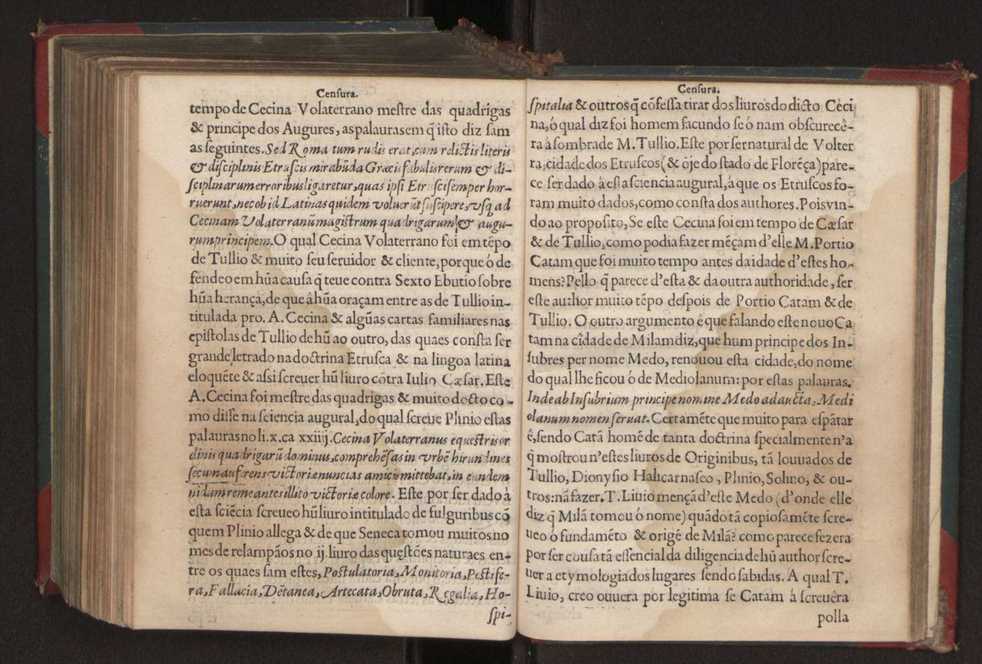 Censura.
tempo de Cecina Volaterrano mestre das quadrigas
& principe dos Augures, as palauras em q̃ isto diz sam
as seguintes. Sed Roma tum rudis erat, cum relictis literis
& disciplinis Etruscis mirabũda Græcis fabulis rerum & di-
sciplinarum erroribus ligaretur, quas ipsi Etrusci semper hor-
ruerunt, nec ob id Latinas quidem voluerũt suscipere, vsq̃ ad
Cecinam Volaterranũ magistrum quadrigarum & augu-
rum principem. O qual Cecina Volaterrano foi em tẽpo
de Tullio & muito seu seruidor & cliente, porque ó de
fendeo em hũa causa q̃ teue contra Sexto Ebutio sobre
hũa herança, de que á hũa oraçam entre as de Tullio in-
titulada pro. A. Cecina & algũas cartas familiares nas
epistolas de Tullio de hũ ao outro, das quaes consta ser
grande letrado na doctrina Etrusca & na lingoa latina
eloquẽte & assi screuer hũ liuro cõtra Iulio Cæsar. Este
A. Cecina foi mestre das quadrigas & muito docto co-
mo disse na sciencia augural, do qual screue Plinio estas
palauras no li. x. ca xxiiij. Cecina Volaterranus equestris or
dinis quadrigarũ dominus, comprehẽsas in vrbẽ hirundines
secum auferens victoriæ nuncias amicis mittebat, in eundem
nidum remeantes illito victoriæ colore. Este por ser dado à
esta sciẽcia screueo hũ liuro intitulado de fulguribus cõ
quem Plinio allega & de que Seneca tomou muitos no
mes de relampãos no ij. liuro das questões naturaes en-
tre os quaes sam estes, Postulatoria, Monitoria, Pestife-
ra, Fallacia, Dẽtanea, Artecata, Obruta, Regalia, Ho-
spi-
Censura.
spitalia & outros q̃ cõfessa tirar dos liuros do dicto Ceci
na, ó qual diz foi homem facundo se ó nam obscurecê-
ra à sombra de M. Tullio. Este por ser natural de Volter
ra, cidade dos Etruscos (& óje do stado de Florẽça) pare-
ce ser dado à esta sciencia augural, à que os Etruscos fo-
ram muito dados, como consta dos authores. Pois vin-
do ao proposito, Se este Cecina foi em tempo de Cæsar
& de Tullio, como podia fazer mẽçam d'elle M. Portio
Catam que foi muito tempo antes da idade d'estes ho-
mens? Pello q̃ parece d'esta & da outra authoridade, ser
este author muito tẽpo despois de Portio Catam & de
Tullio. O outro argumento é que falando este nouo Ca
tam na cidade de Milam diz, que hum principe dos In-
subres per nome Medo, renouou esta cidade, do nome
do qual lhe ficou ó de Mediolanum: por estas palauras.
Inde ab Insubrium principe nomine Medo adaucta, Medi
olanum nomen seruat. Certamẽte que muito para espãtar
é, sendo Catã homẽ de tanta doctrina specialmente n'a
q̃ mostrou n'estes liuros de Originibus, tã louuados de
Tullio, Dionysio Halicarnaseo, Plinio, Solino, & ou-
tros: nã fazer. T. Liuio mençã d'este Medo (d'onde elle
diz q̃ Milã tomou ó nome) quãdo tã copiosamẽte scre-
ueo ó fundamẽto & origẽ de Milã? como parece fezera
por ser cousa tã essencial da diligencia de hũ author scre-
uer a etymologia dos lugares sendo sabidas. A qual T.
Liuio, creo ouuera por legitima se Catam á screuêra
polla